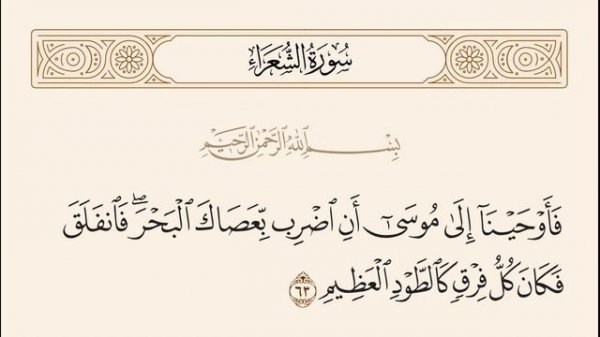 سُورَةُ الشُّعَرَاءِ
بِسْمِ ٱللَّهِ ٱلرَّحْمَٰنِ ٱلرَّحِيمِ
فَأَوْحَيْنَآ إِلَىٰ مُوسَىٰٓ أَنِ ٱضْرِب بِّعَصَاكَ ٱلْبَحْرَۖ فَٱنفَلَقَ
فَكَانَ كُلُّ فِرْقٍ كَٱلطَّوْدِ ٱلْعَظِيمِ ٦٣